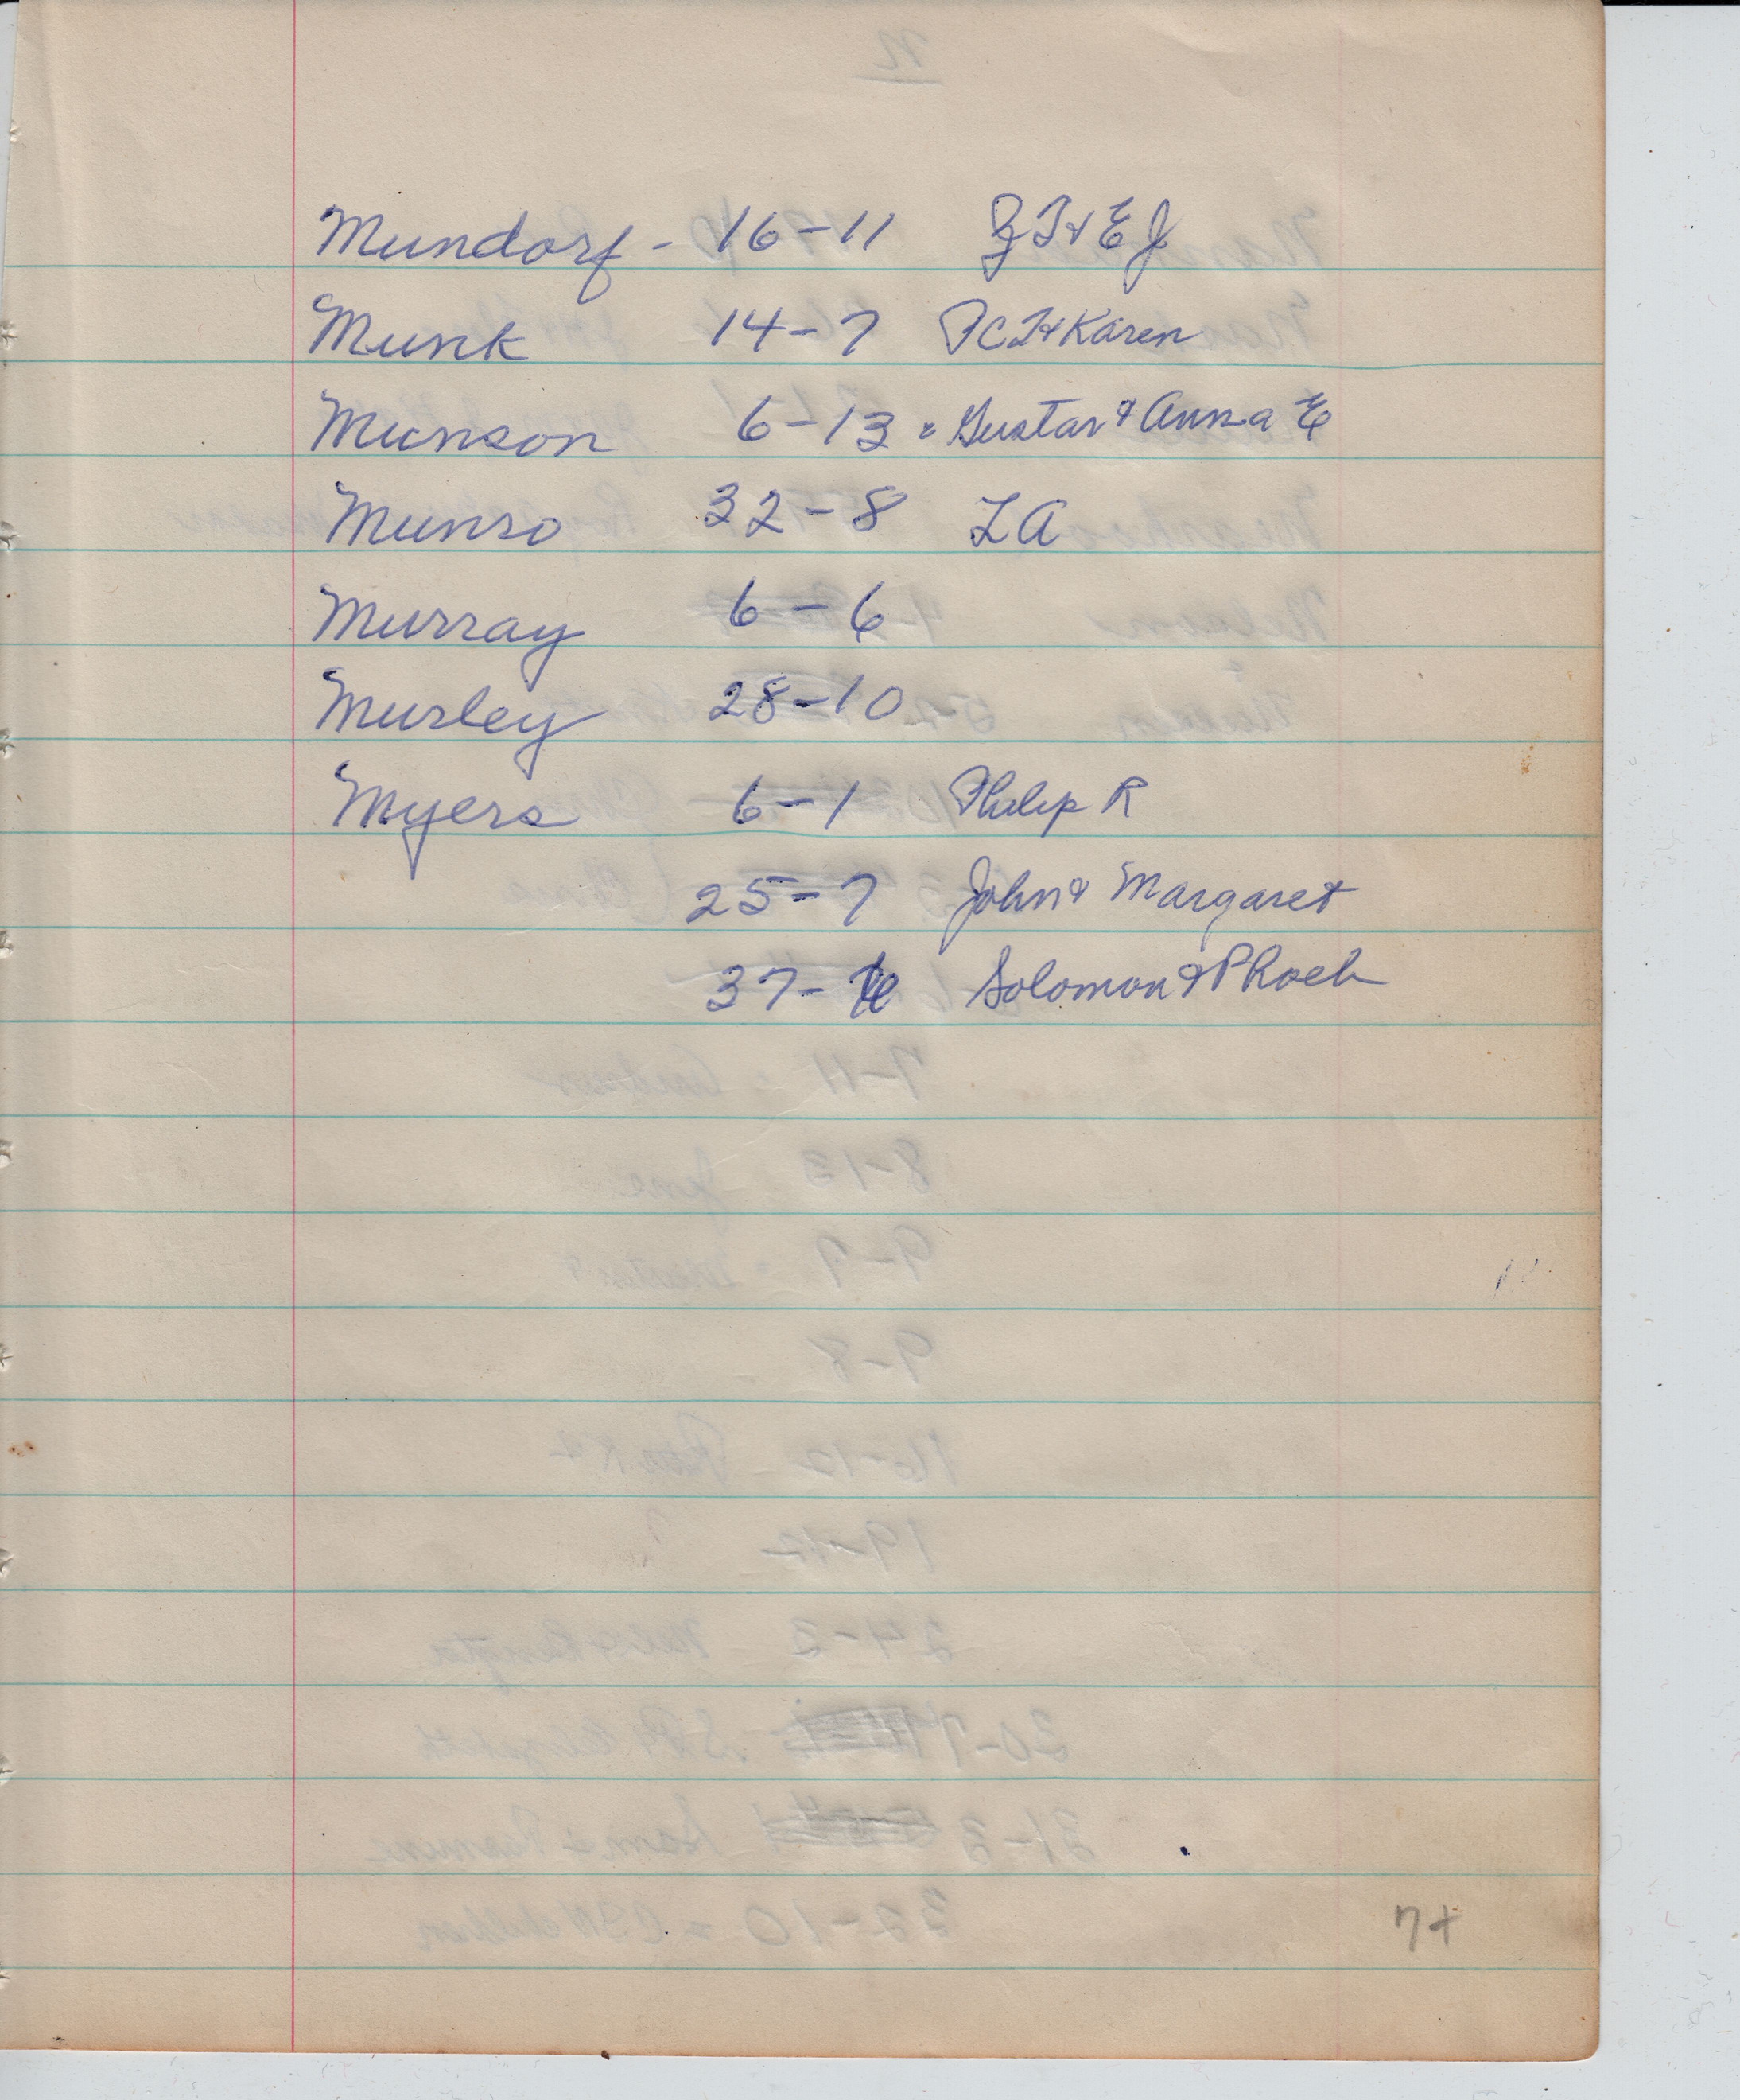 Mundorf - 16-11 Z T & E J
Munk 14-7 F C T & Karen
Munson 6-13 - Gustav & Anna E
Munro 32-8 L A
Murray 6-6
Murley 28-10
Myers 6-1 Philip R
25-7 John & Margaret
37- Solomon & Phoeb